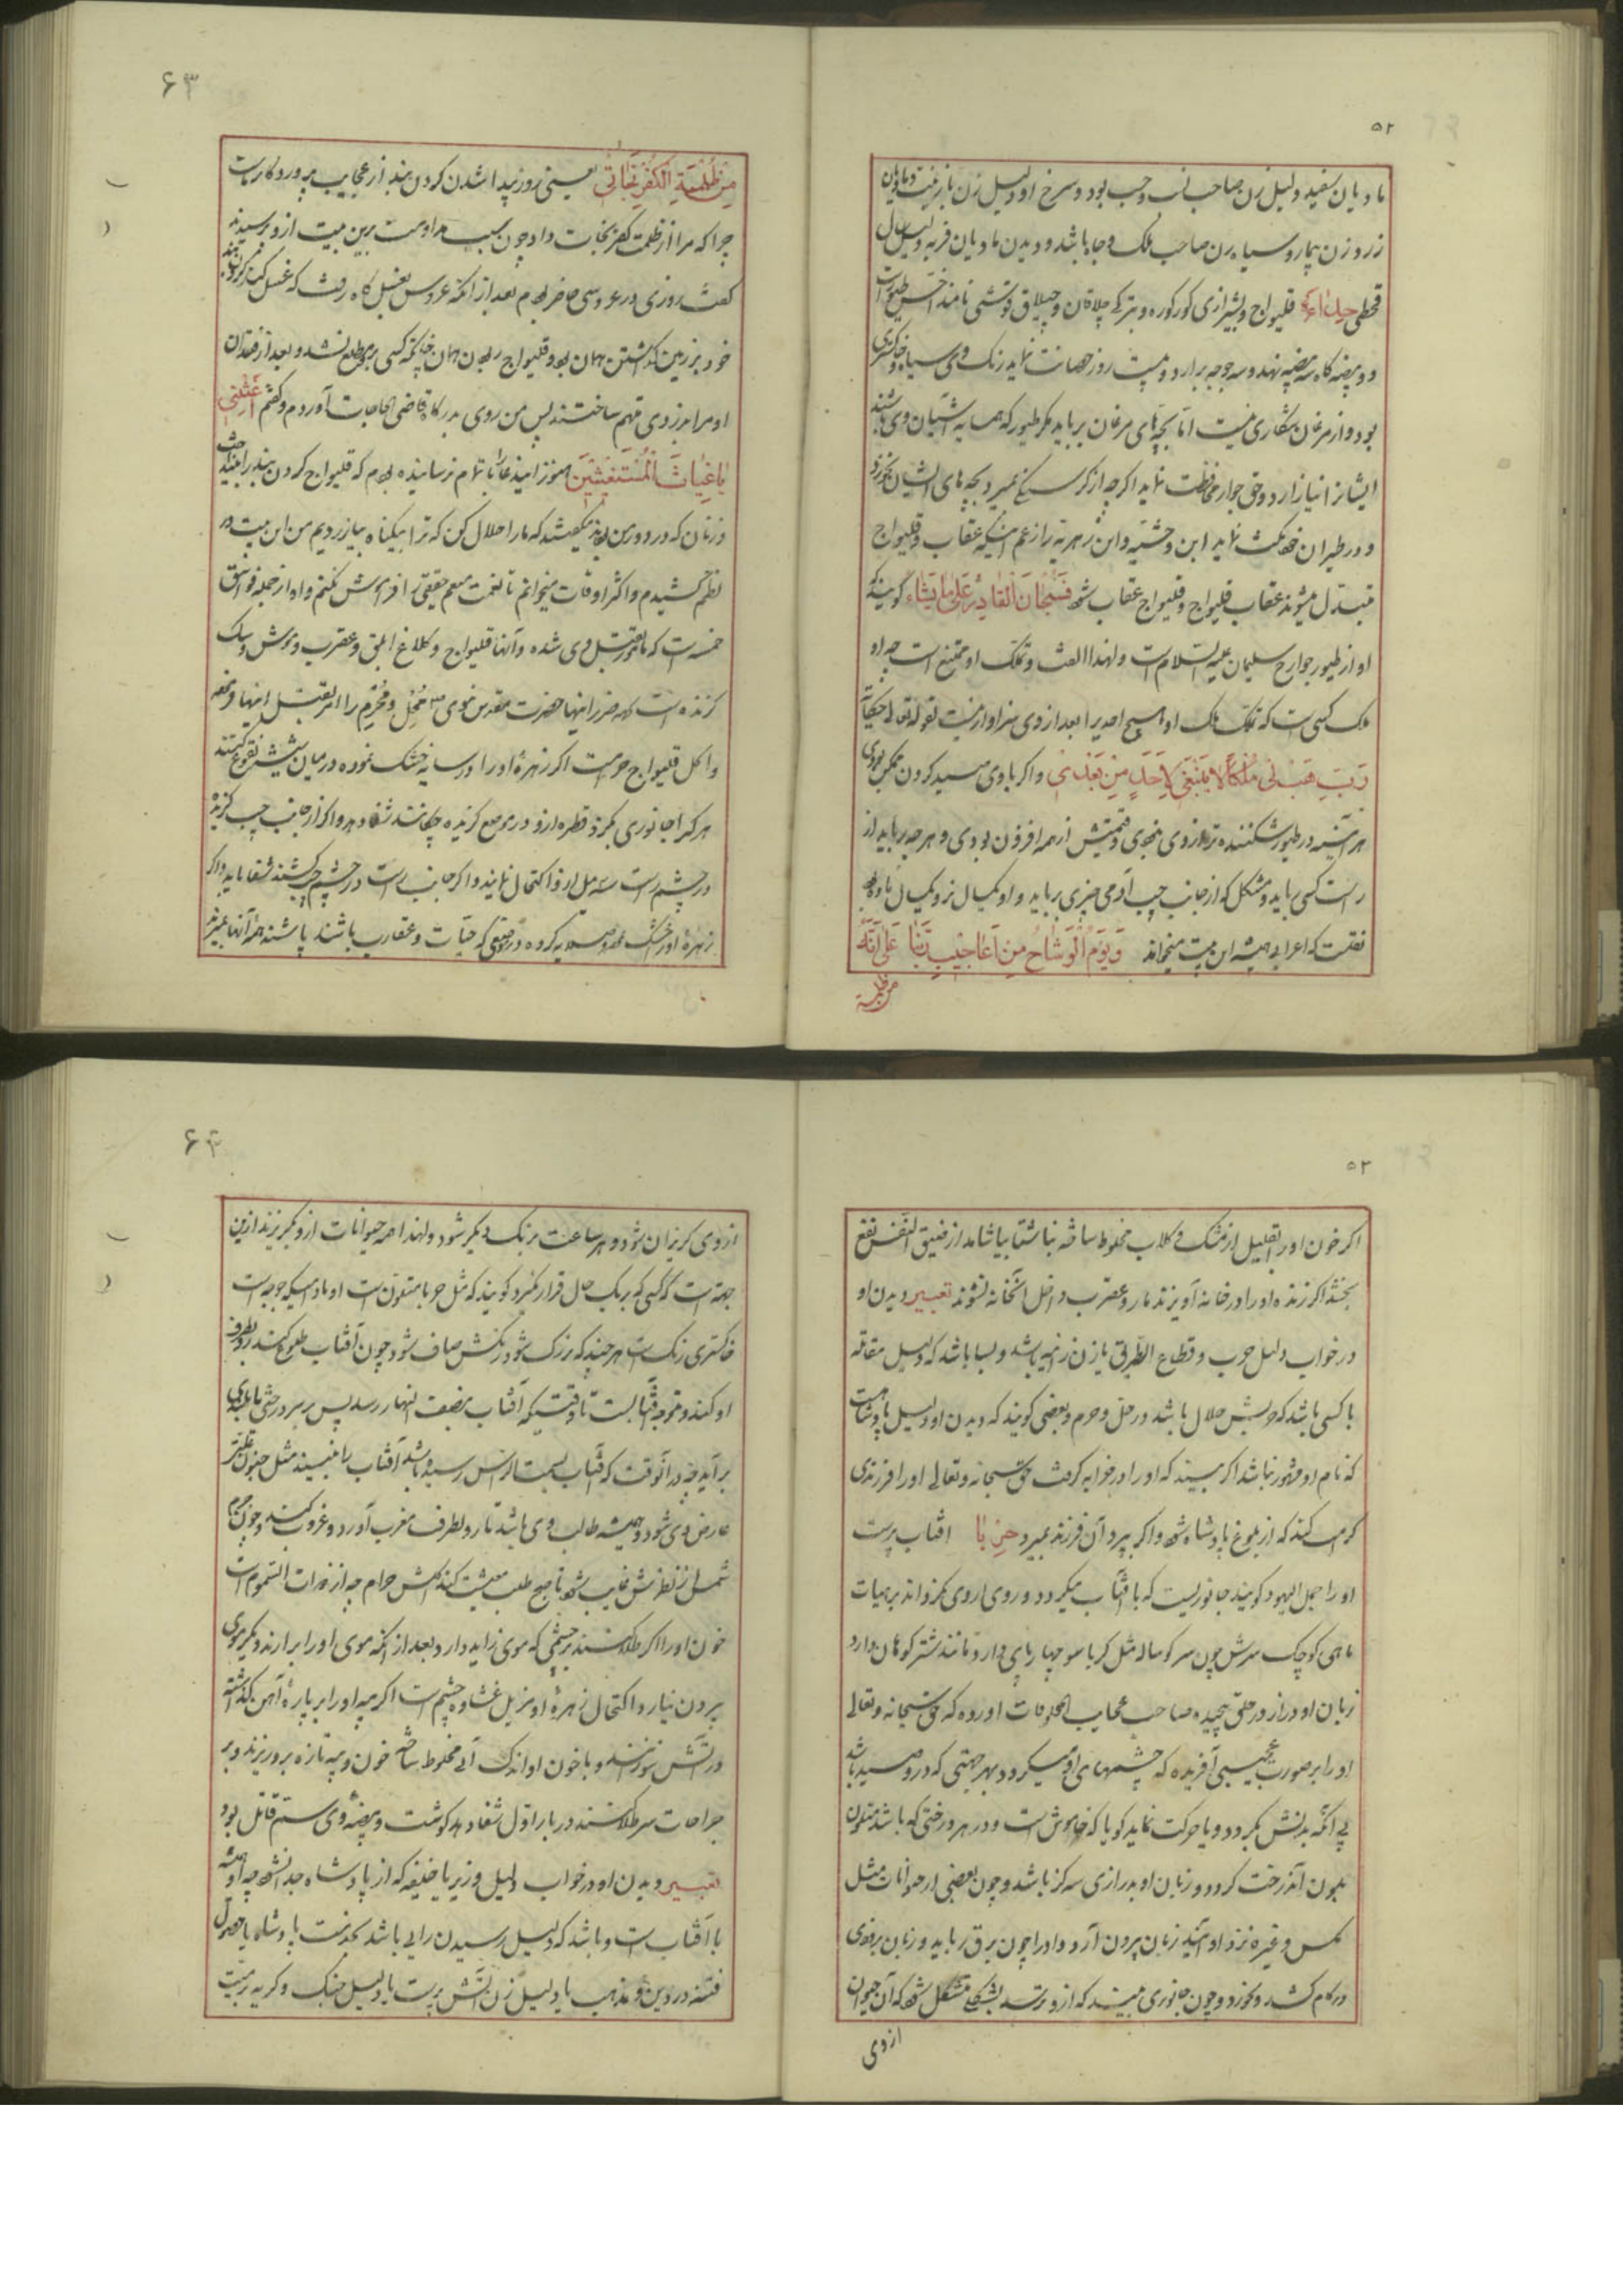 ۵۲
مادیان سفید دلیل زن صاحب نسب و حسب بود و سرخ او دلیل زن با زینت و مادیان
زرد زن بیمار و سیاه زن صاحب ملک و جاه باشد و دیدن مادیان فربه دلیل سال
قحطی حداة قلیواج و بشیرازی کورکوره و بترکی چلاقان و چیلاق و قوشی نامند اخس طیورات
دو بیضه گاه سه بیضه نهد و سه جوجه برآرد و بیست روز حضانت نماید رنگ وی سیاه و خاکستری
بود و از مرغان شکاری نیست اما بچه‌های مرغان برباید مکر طیور که همسایه آشیان وی باشند
ایشانرا نیازارد و حق جوار محافظت نماید اگرچه از گرسنگی بمیرد بچه‌های ایشان نخورد
و در طیران مکث نماید ابن وحشیه و ابن زهر را زعم اینکه عقاب و قلیواج
متبدل میشوند عقاب قلیواج و قلیواج عقاب شود فسبحان القادر علی ما یشاء گویند که
او از طیور جوارح سلیمان علیه السلام است و لهذا الفت و تملک او ممتنع است چه او
ملک کسی است که تملک ملک او هیچ احدیرا بعد از وی سزاوار نیست لقوله تعالی حکایة
رب هب لی ملکا لا ینبغی لاحد من بعدی و اگر با وی صید کردن ممکن بودی
هر آینه در طیور شکننده تر از وی نبودی و قیمتش از همه افزون بودی و هرچه رباید از
راست کسی رباید و مشکل که از جانب چپ آدمی چیزی رباید و او یکسال نر و یکسال ماده بود
نقلست که اعرابی همیشه این بیت میخواند و یوم الوشاح من اعاجیب ربنا علی انه
من ظلمة
۶۳
من ظلمة الکفر نجانی یعنی روز پیدا شدن گردن‌بند از عجایب پروردگار ماست
چرا که مرا از ظلمت کفر نجات داد چون سبب مداومت برین بیت ازو پرسیدند
گفت روزی در عروسی حاضر بودم بعد از آنکه عروس بغسل گاه رفت که غسل کند گردن‌بند
خود بر زمین گذاشتن همان بود و قلیواج ربودن همان چنانکه کسی بر وی مطلع نشد و بعد از فقدان
او مرا بدزدی متهم ساختند پس من روی بدرگاه قاضی الحاجات آوردم و گفتم اغثنی
یا غیاث المستغیثین هنوز این دعا را باتمام نرسانیده بودم که قلیواج گردن‌بند را بینداخت
و زنان که در دور من بودند میگفتند که ما را حلال کن که ترا بیگناه بیازردیم من این بیت در
نظم کشیدم و اکثر اوقات میخوانم تا نعمت منعم حقیقی را فراموش نکنم و او از جمله فواسق
خمسه است که مأمور بقتل وی شده و آنها قلیواج و کلاغ ابلق و عقرب و موش و سک
گزنده است حضرت مقدس نبوی محل و محرم را امر بقتل اینها فرموده
و اکل قلیواج حرامست اگر زهره او را در سایه خشک نموده در میان شیشه نقوع کنند
هر کرا جانوری بگزد قطره ازو در موضع گزیده چکانند شفا دهد و اگر از جانب چپ گزیده
در چشم راست سه میل ازو اکتحال نمایند و اگر جانب راست در چشم چپ کشند شفا یابد و اگر
زهره او را خشک و صلایه کرده در موضعی که حیات و عقارب باشند پاشند همه آنها بمیرند
۵۳
اگر خون او را بقلیل از مشک و گلاب مخلوط ساخته ناشتا بیاشامد از ضیق النفس نفع
بخشد اگر زنده او را در خانه آویزند مار و عقرب داخل آنخانه نشوند تعبیر دیدن او
در خواب دلیل حرب و قطاع الطریق یا زن زانیه باشد و بسا باشد که دلیل مقاتله
با کسی باشد که خونش حلال باشد در حل و حرم و بعضی گویند که دیدن او دلیل پادشاهیست
که نام او مشهور نباشد اگر بیند که او را در خوابه گرفت حق سبحانه و تعالی او را فرزندی
کرامت کند که از بلوغ پادشاه شود و اگر بپرد آن فرزند بمیرد حربا آفتاب پرست
او را جمل الیهود گویند جانوریست که با آفتاب میگردد و روی از وی نگرداند بر هیات
ماهی کوچک سرش چون سر گوساله مثل کرباسو چهار پای دارد و مانند شتر کوهان دارد
زبان او دراز در حلق پیچیده صاحب عجایب المخلوقات آورده که حق سبحانه و تعالی
او را بر صورت عجیبی آفریده که چشمهای او میگردد بهر جهتی که در وی صید باشد
بی آنکه بدنش بگردد و یا حرکت نماید گویا که خاموش است و در هر درختی که باشد متلون
بلون آندرخت گردد و زبان او بدرازی سه گز باشد و چون بعضی از حیوانات مثل
مکس و غیره نزد او آیند زبان بیرون آرد و او را چون برق رباید و زبان بزودی
در کام کشد و بخورد و چون جانوری بیند که ازو ترسد بشکلی متشکل شود که آن حیوان
ازوی
۶۴
ازوی گریزان شود و هر ساعت برنگ دیگر شود و لهذا همه حیوانات ازو بگریزند ازین
جهت است که کسی که بر یک حال قرار نگیرد گویند که مثل حربا متلون است او مادامیکه جوجه است
خاکستری رنگست هر چند که بزرگ شود رنگش صاف شود چون آفتاب طلوع کند رو بطرف
او کند و متوجه آفتابست تا وقتیکه آفتاب بنصف النهار رسد پس بر سر درختی یا بلندی
برآید چه در آنوقت که آفتاب بسمت الراس رسیده باشد آفتاب را نه بیند مثل جنون عظیمتر
عارض وی شود و همیشه طالب وی باشد تا رو بطرف مغرب آورد و غروب کند و چون جرم
شمس از نظرش غایب شود تا صبح طلب معیشت کند اکلش حرام چه از ذوات السموم است
خون او را اگر طلا کنند بر چشمی که موی زاید دارد بعد از آنکه موی او را برآرند دیگر موی
بیرون نیارد اکتحال زهره او مزیل غشاوه چشم است اگر پیه او را بر پاره آهن گذاشته
در آتش سوزند و با خون او اندک آبی مخلوط ساخته خون و پیه تازه برو ریزند و بر
جراحات سر طلا کنند در بار اول شفا دهد گوشت و بیضه وی سم قاتل بود
تعبیر دیدن او در خواب دلیل وزیر یا خلیفه که از پادشاه جدا نشود چه او همیشه
با آفتاب است و باشد که دلیل رسیدن رایی باشد بخدمت پادشاه یا حصول
فتنه در دین و مذهب یا دلیل زن آتش پرست یا دلیل جنگ و گریه بر میت